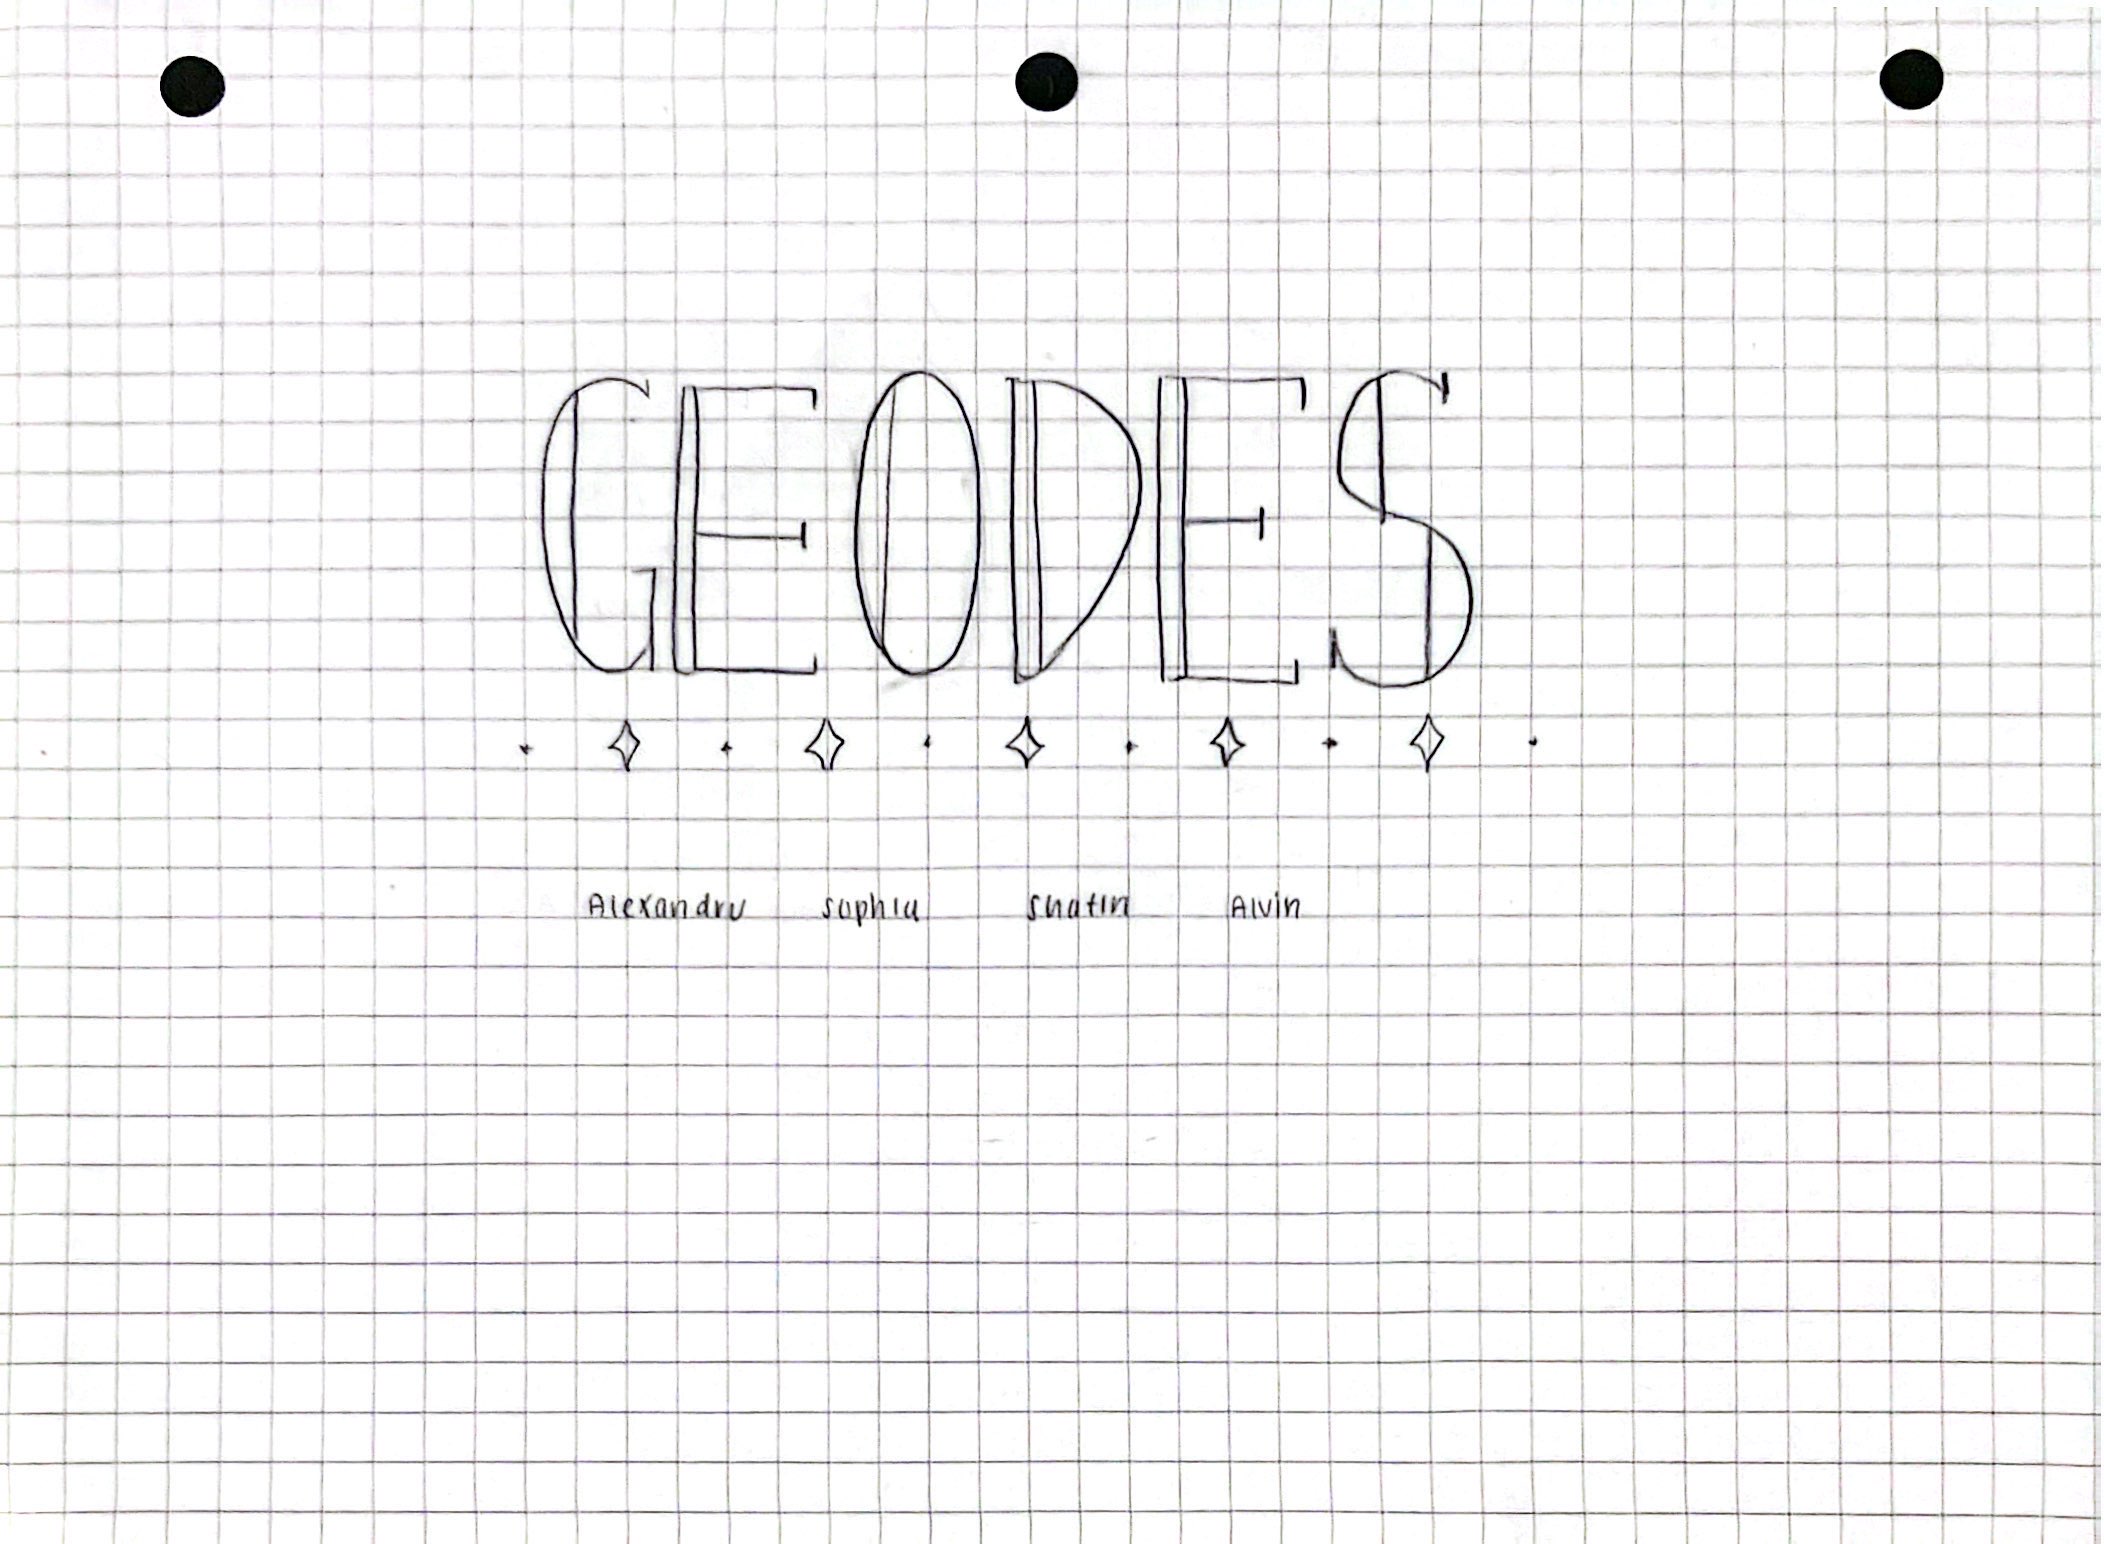 GEODES
Alexandru sophia shatin Alvin